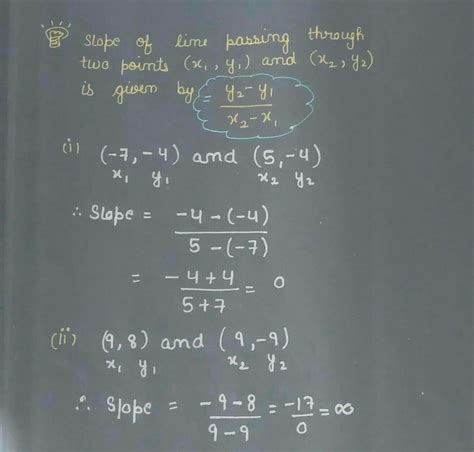 Slope of line passing through
two points (x₁, y₁) and (x₂, y₂)
is given by = (y₂ - y₁)/(x₂ - x₁)
(i) (-7, -4) and (5, -4)
x₁ y₁ x₂ y₂
∴ Slope = (-4 - (-4))/(5 - (-7))
= (-4+4)/(5+7) = 0
(ii) (9, 8) and (9, -9)
x₁ y₁ x₂ y₂
∴ Slope = (-9-8)/(9-9) = -17/0 = ∞